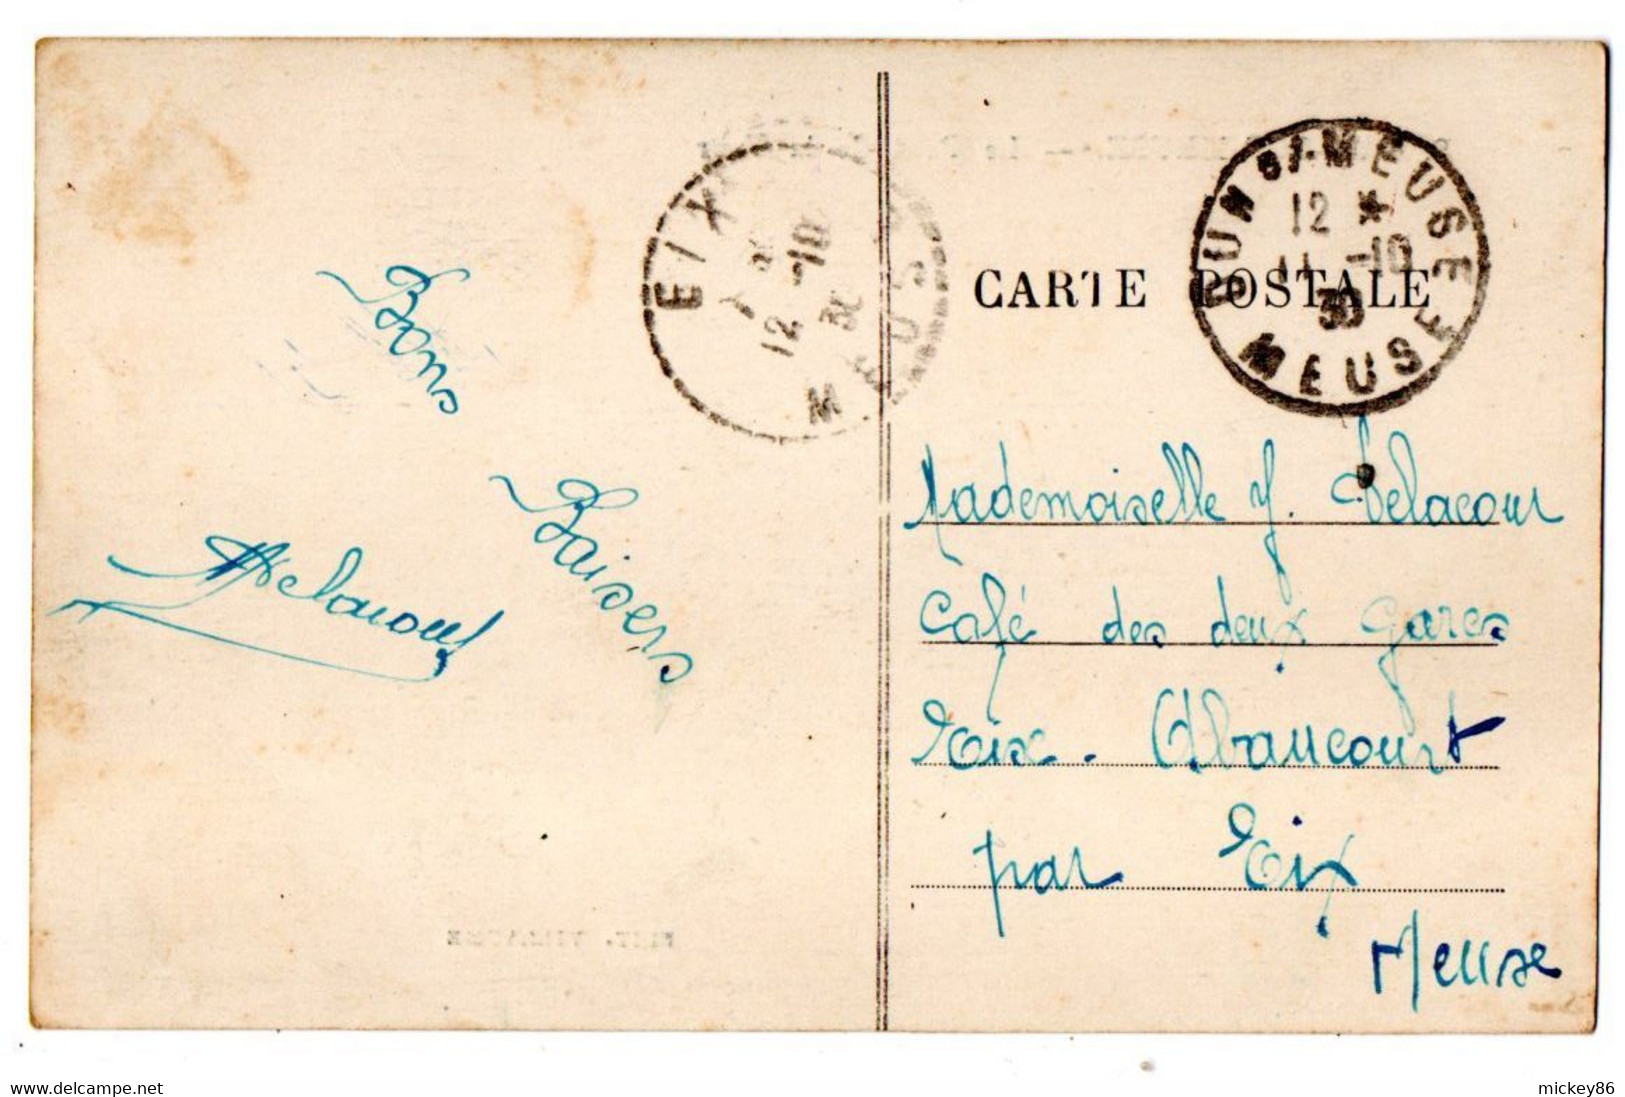 EIX
12 -10
30
MEUSE
DUN S/-MEUSE
12 *
11 -10
30
MEUSE
CARTE POSTALE
Bons
Baisers
Delacourt
Mademoiselle Y. Delacour
Café des deux Gares
Eix. Abaucourt
par Eix
Meuse
www.delcampe.net
mickey86